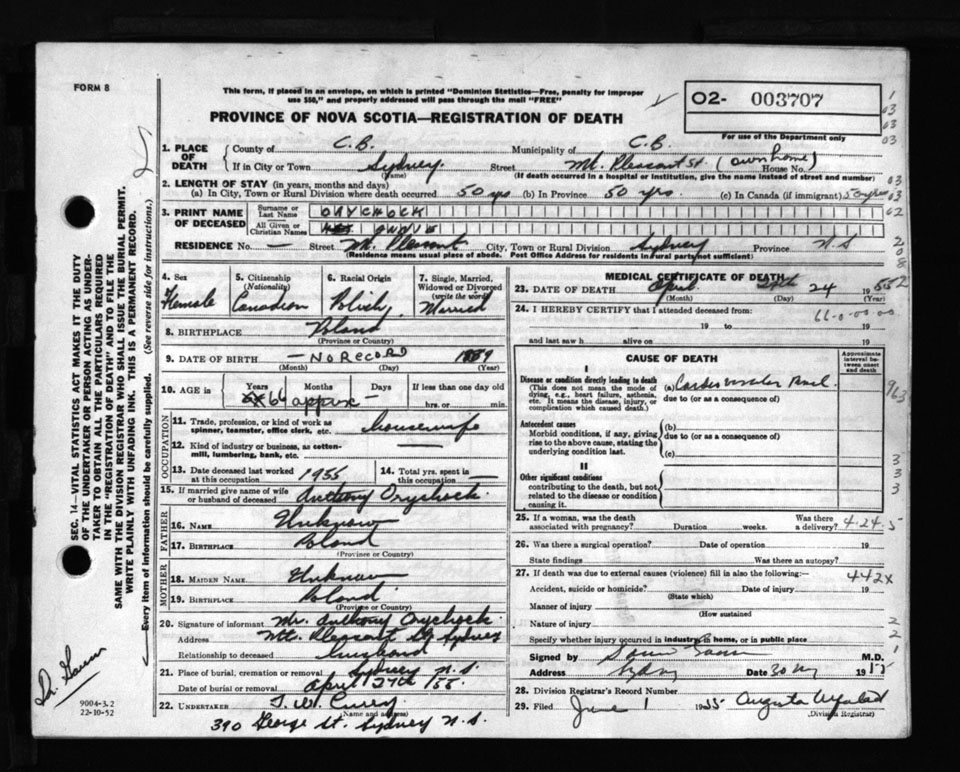 FORM 8
This form, if placed in an envelope, on which is printed "Dominion Statistics—Free, penalty for improper
use $50," and properly addressed will pass through the mail "FREE"
PROVINCE OF NOVA SCOTIA—REGISTRATION OF DEATH
O2- 003707
For use of the Department only
1. PLACE OF DEATH
County of C.B. Municipality of C.B.
If in City or Town Sydney. Street Mt. Pleasant St. House No. (own home)
(Name) (If death occurred in a hospital or institution, give the name instead of street and number)
2. LENGTH OF STAY (in years, months and days)
(a) In City, Town or Rural Division where death occurred 50 yrs (b) In Province 50 yrs. (c) In Canada (if immigrant) 50 yrs
3. PRINT NAME OF DECEASED
Surname or Last Name
All Given or Christian Names
RESIDENCE No. — Street Mt. Pleasant City, Town or Rural Division Sydney Province N.S
(Residence means usual place of abode. Post Office Address for residents in rural parts not sufficient)
4. Sex Female
5. Citizenship (Nationality) Canadian
6. Racial Origin Polish
7. Single, Married, Widowed or Divorced (write the word) Married
8. BIRTHPLACE Poland
(Province or Country)
9. DATE OF BIRTH — NO RECORD
(Month) (Day) (Year)
10. AGE in Years Months Days If less than one day old
66 approx — hrs. or min.
OCCUPATION
11. Trade, profession, or kind of work as spinner, teamster, office clerk, etc. housewife
12. Kind of industry or business, as cotton-mill, lumbering, bank, etc. —
13. Date deceased last worked at this occupation 1955 14. Total yrs. spent in this occupation —
15. If married give name of wife or husband of deceased Anthony Orychock.
FATHER
16. NAME Unknown
17. BIRTHPLACE Poland
(Province or Country)
MOTHER
18. MAIDEN NAME Unknown
19. BIRTHPLACE Poland
(Province or Country)
20. Signature of informant Mr. Anthony Orychock
Address Mt. Pleasant St Sydney
Relationship to deceased husband
21. Place of burial, cremation or removal Sydney N.S.
Date of burial or removal April 27th /55.
22. UNDERTAKER T. W. Curry
(Name and address)
390 George St. Sydney N.S.
MEDICAL CERTIFICATE OF DEATH
23. DATE OF DEATH April 24 1955
(Month) (Day) (Year)
24. I HEREBY CERTIFY that I attended deceased from:
19 to 19
and last saw h alive on 19
CAUSE OF DEATH
Approximate interval between onset and death
I
Disease or condition directly leading to death
(This does not mean the mode of dying, e.g., heart failure, asthenia, etc. It means the disease, injury, or complication which caused death.)
(a)
due to (or as a consequence of)
Antecedent causes
Morbid conditions, if any, giving rise to the above cause, stating the underlying condition last.
(b)
due to (or as a consequence of)
(c)
II
Other significant conditions
contributing to the death, but not related to the disease or condition causing it.
25. If a woman, was the death associated with pregnancy? Duration weeks. Was there a delivery? 4-24-5
26. Was there a surgical operation? Date of operation 19
State findings Was there an autopsy?
27. If death was due to external causes (violence) fill in also the following:— 442x
Accident, suicide or homicide? Date of injury 19
(State which)
Manner of injury
(How sustained
Nature of injury
Specify whether injury occurred in industry, in home, or in public place
Signed by M.D.
Address Sydney Date 30 1955
28. Division Registrar's Record Number
29. Filed June 1 1955 Augusta
(Division Registrar)
SEC. 14.—VITAL STATISTICS ACT MAKES IT THE DUTY
OF THE UNDERTAKER OR PERSON ACTING AS UNDER-
TAKER TO OBTAIN ALL THE PARTICULARS REQUIRED
IN THE "REGISTRATION OF DEATH" AND TO FILE THE
SAME WITH THE DIVISION REGISTRAR WHO SHALL ISSUE THE BURIAL PERMIT.
WRITE PLAINLY WITH UNFADING INK. THIS IS A PERMANENT RECORD.
Every item of information should be carefully supplied. (See reverse side for instructions.)
9004-3.2
22-10-52